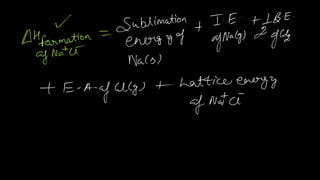 ΔH formation of Na⁺Cl⁻ = Sublimation energy of Na(s) + I.E. of Na(g) + 1/2 B.E of Cl₂
+ E.A. of Cl(g) + Lattice energy of Na⁺Cl⁻